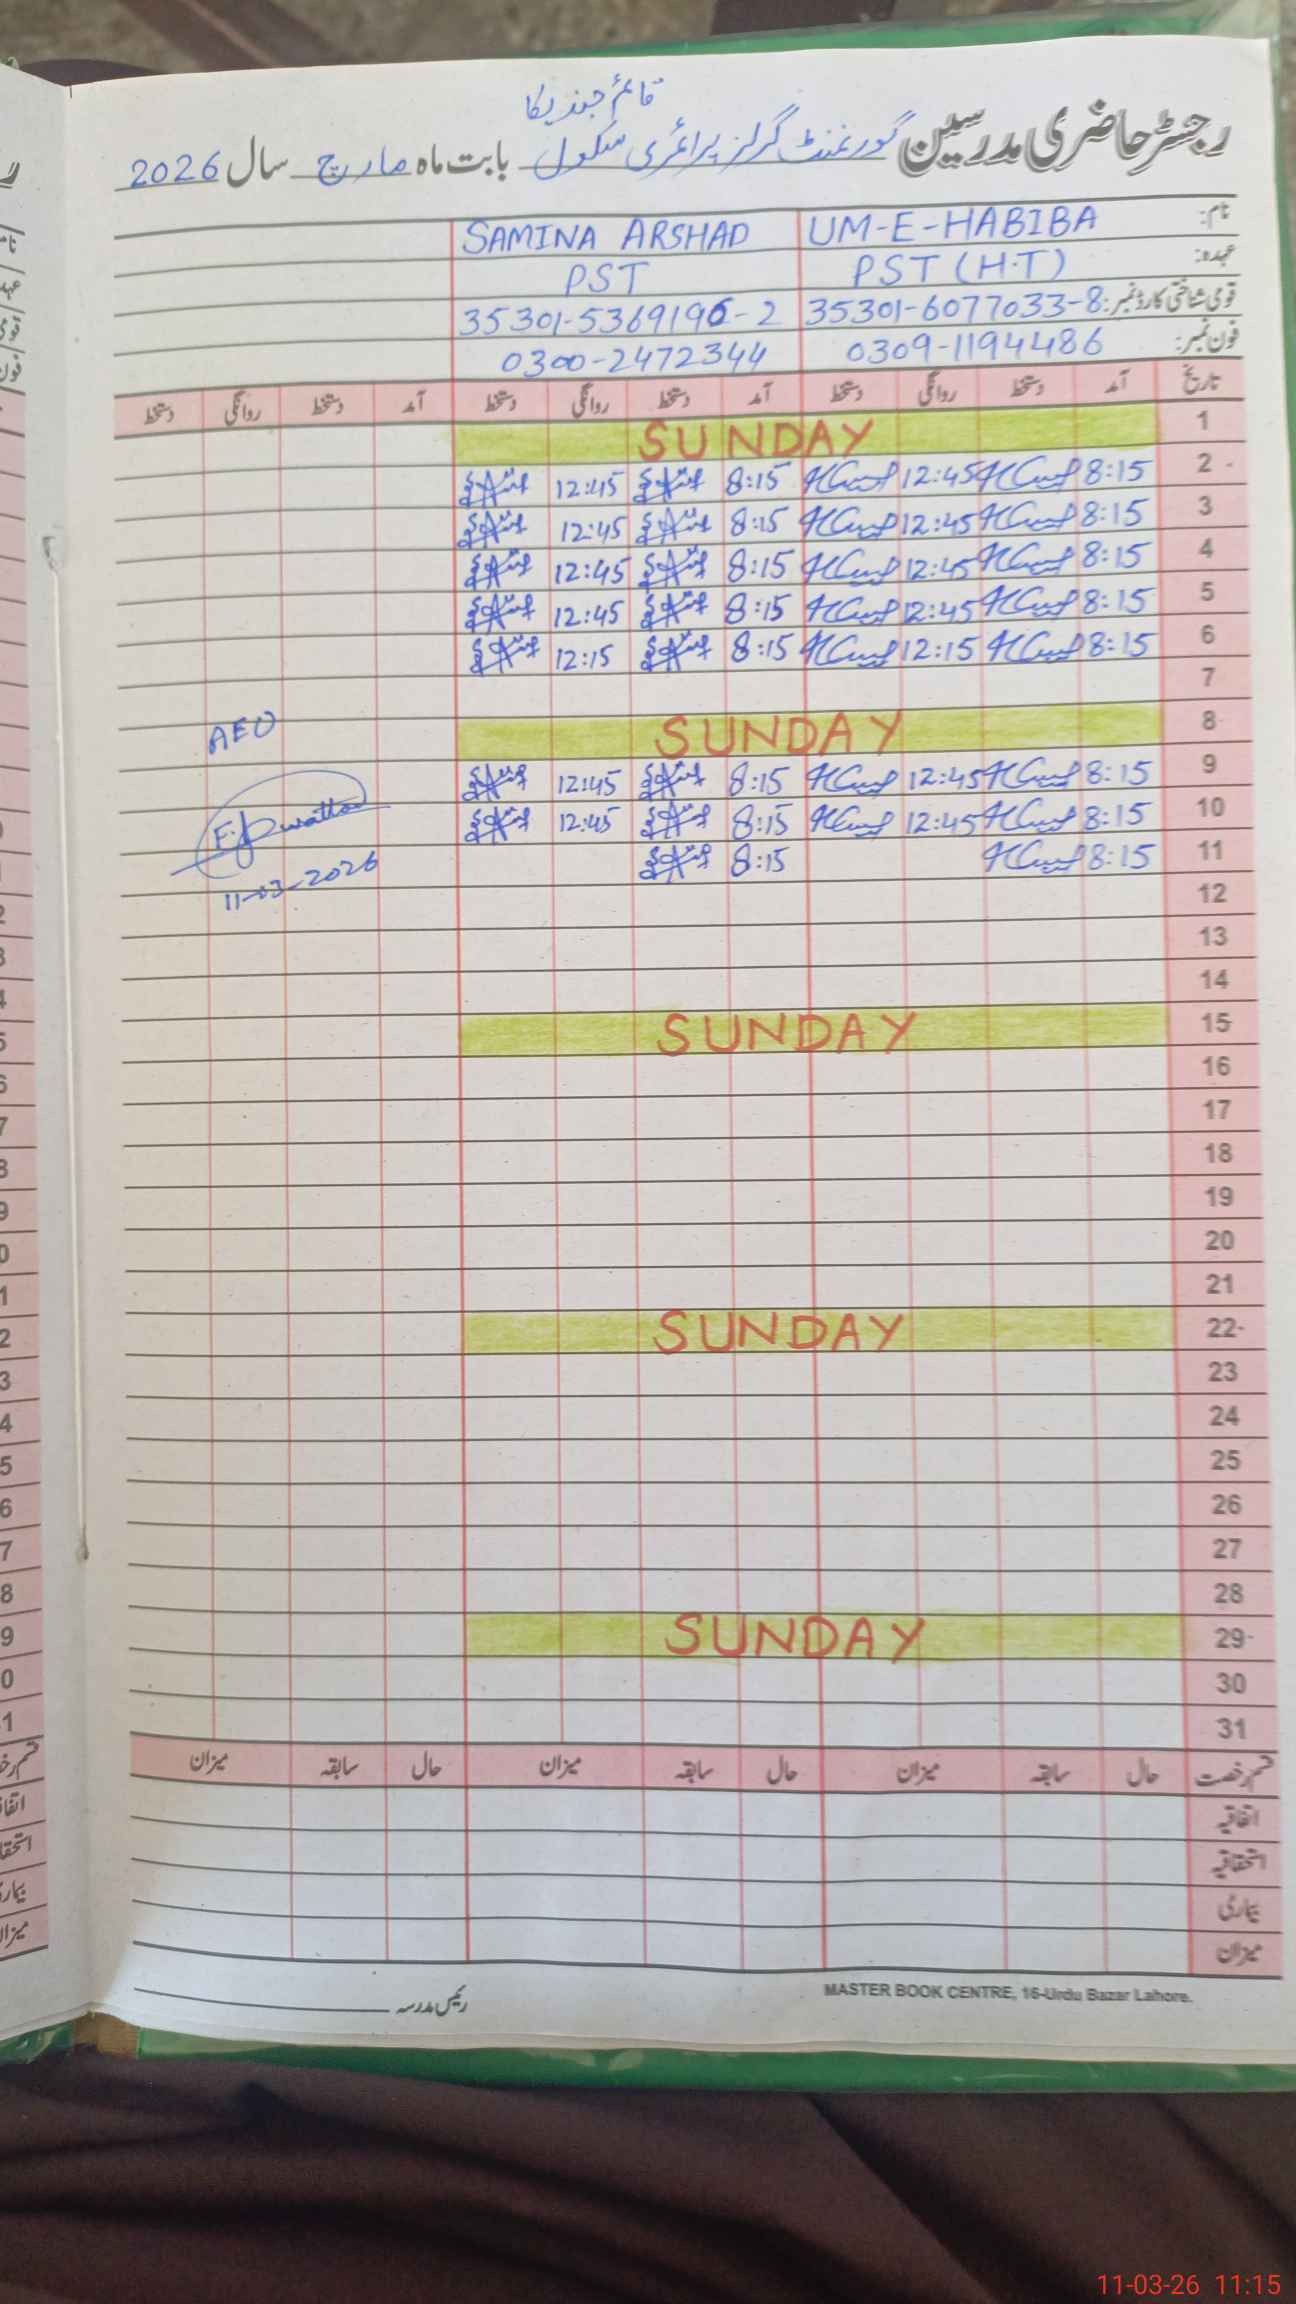 قائم جندیکا
رجسٹر حاضری مدرسین گورنمنٹ گرلز پرائمری سکول بابت ماہ مارچ سال 2026
نام: UM-E-HABIBA SAMINA ARSHAD
عہدہ: PST (H.T) PST
قومی شناختی کارڈ نمبر: 35301-6077033-8 35301-5369196-2
فون نمبر: 0309-1194486 0300-2472344
تاریخ آمد دستخط روانگی دستخط آمد دستخط روانگی دستخط آمد دستخط روانگی دستخط
1 SUNDAY
2 8:15 12:45 8:15 12:45
3 8:15 12:45 8:15 12:45
4 8:15 12:45 8:15 12:45
5 8:15 12:45 8:15 12:45
6 8:15 12:15 8:15 12:15
7
8 SUNDAY AEO
9 8:15 12:45 8:15 12:45
10 8:15 12:45 8:15 12:45
11 8:15 8:15 11-03-2026
12
13
14
15 SUNDAY
16
17
18
19
20
21
22 SUNDAY
23
24
25
26
27
28
29 SUNDAY
30
31
قسم رخصت حال سابقہ میزان حال سابقہ میزان حال سابقہ میزان
اتفاقیہ
استحقاقیہ
بیماری
میزان
رئیس مدرسہ
MASTER BOOK CENTRE, 16-Urdu Bazar Lahore.
11-03-26 11:15